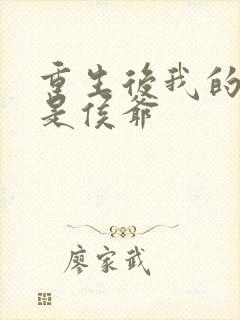 重生後我的
是侯爺
廖家武